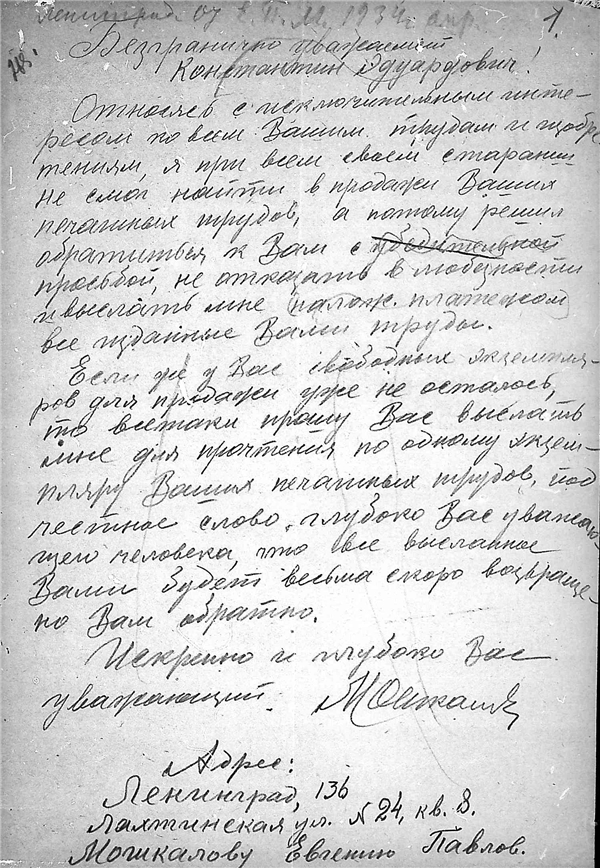 Ленинград. 1934г. апр. 1.
Безгранично уважаемый
Константин Эдуардович!
Относясь с исключительным инте-
ресом ко всем Вашим трудам и изобре
тениям, я при всем своем старании
не смог найти в продажи Ваших
печатных трудов, а потому решил
обратиться к Вам с убедительной
просьбой, не отказать в любезности
и выслать мне (налож. платежом)
все изданные Вами труды.
Если же у Вас свободных экземпля-
ров для продажи уже не осталось,
то всетаки прошу Вас выслать
мне для прочтения по одному экзем-
пляру Ваших печатных трудов, под
честное слово, глубоко Вас уважаю-
щего человека, что все высланное
Вами будет весьма скоро возвраще-
но Вам обратно.
Искренно и глубоко Вас
уважающий.
Адрес:
Ленинград, 136
Лахтинская ул. N 24, кв. 8.
Мошкалову Евгению Павлов.